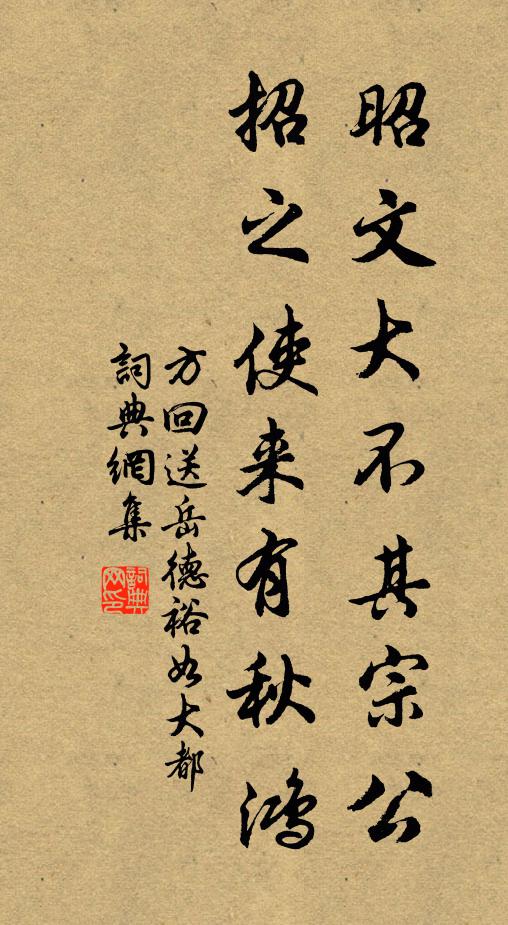 昭文大不其宗公
招之使来有秋鸿
方回送岳德裕如大都
詞典網集
詞典网印